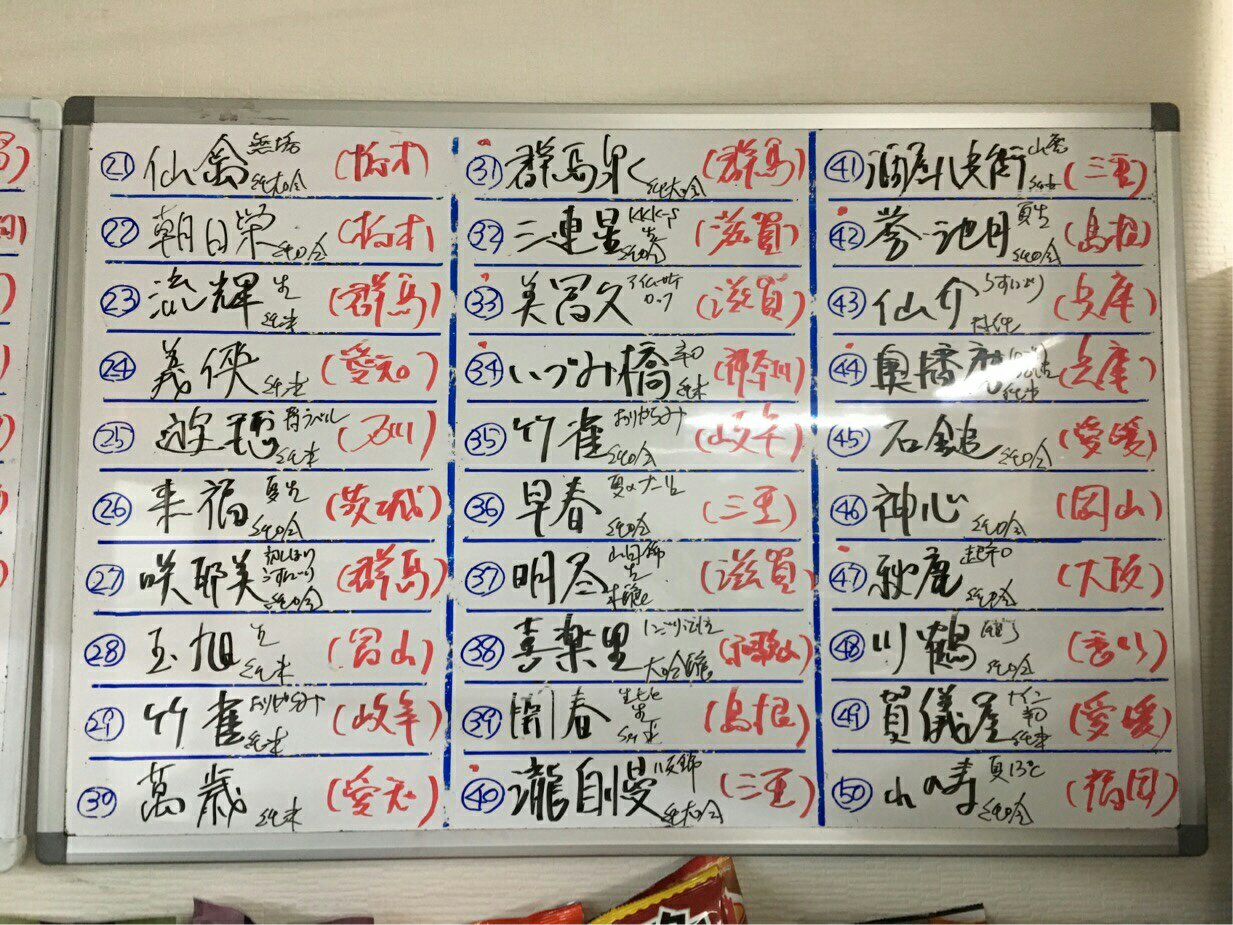 ㉑ 仙禽 無垢 純大吟 (栃木)
㉒ 朝日栄 純吟 (栃木)
㉓ 流輝 生 純米 (群馬)
㉔ 義侠 純米 (愛知)
㉕ 遊穂 青ラベル 純米 (石川)
㉖ 来福 夏生 純吟 (茨城)
㉗ 咲耶美 初しぼり うすにごり 純吟 (群馬)
㉘ 玉旭 生 純米 (富山)
㉙ 竹雀 おりがらみ 純米 (岐阜)
㉚ 萬歳 純米 (愛知)
㉛ 群馬泉 純大吟 (群馬)
㉜ 三連星 生 純吟 (滋賀)
㉝ 美冨久 (滋賀)
㉞ いづみ橋 辛口 純米 (神奈川)
㉟ 竹雀 おりがらみ 純吟 (岐阜)
㊱ 早春 純吟 (三重)
㊲ 明尽 山田錦 生 (滋賀)
㊳ 喜楽里 大吟醸 (和歌山)
㊴ 開春 生 純米 (島根)
㊵ 瀧自慢 純大吟 (三重)
㊶ 酒屋八兵衛 山廃 純米 (三重)
㊷ 誉池月 夏生 純吟 (島根)
㊸ 仙介 うすにごり 特純 (兵庫)
㊹ 奥播磨 純米 (兵庫)
㊺ 石鎚 純吟 (愛媛)
㊻ 神心 純吟 (岡山)
㊼ 秋鹿 超辛口 純吟 (大阪)
㊽ 川鶴 純吟 (香川)
㊾ 賀儀屋 辛口 純米 (愛媛)
㊿ 山の寿 夏13℃ 純吟 (福岡)